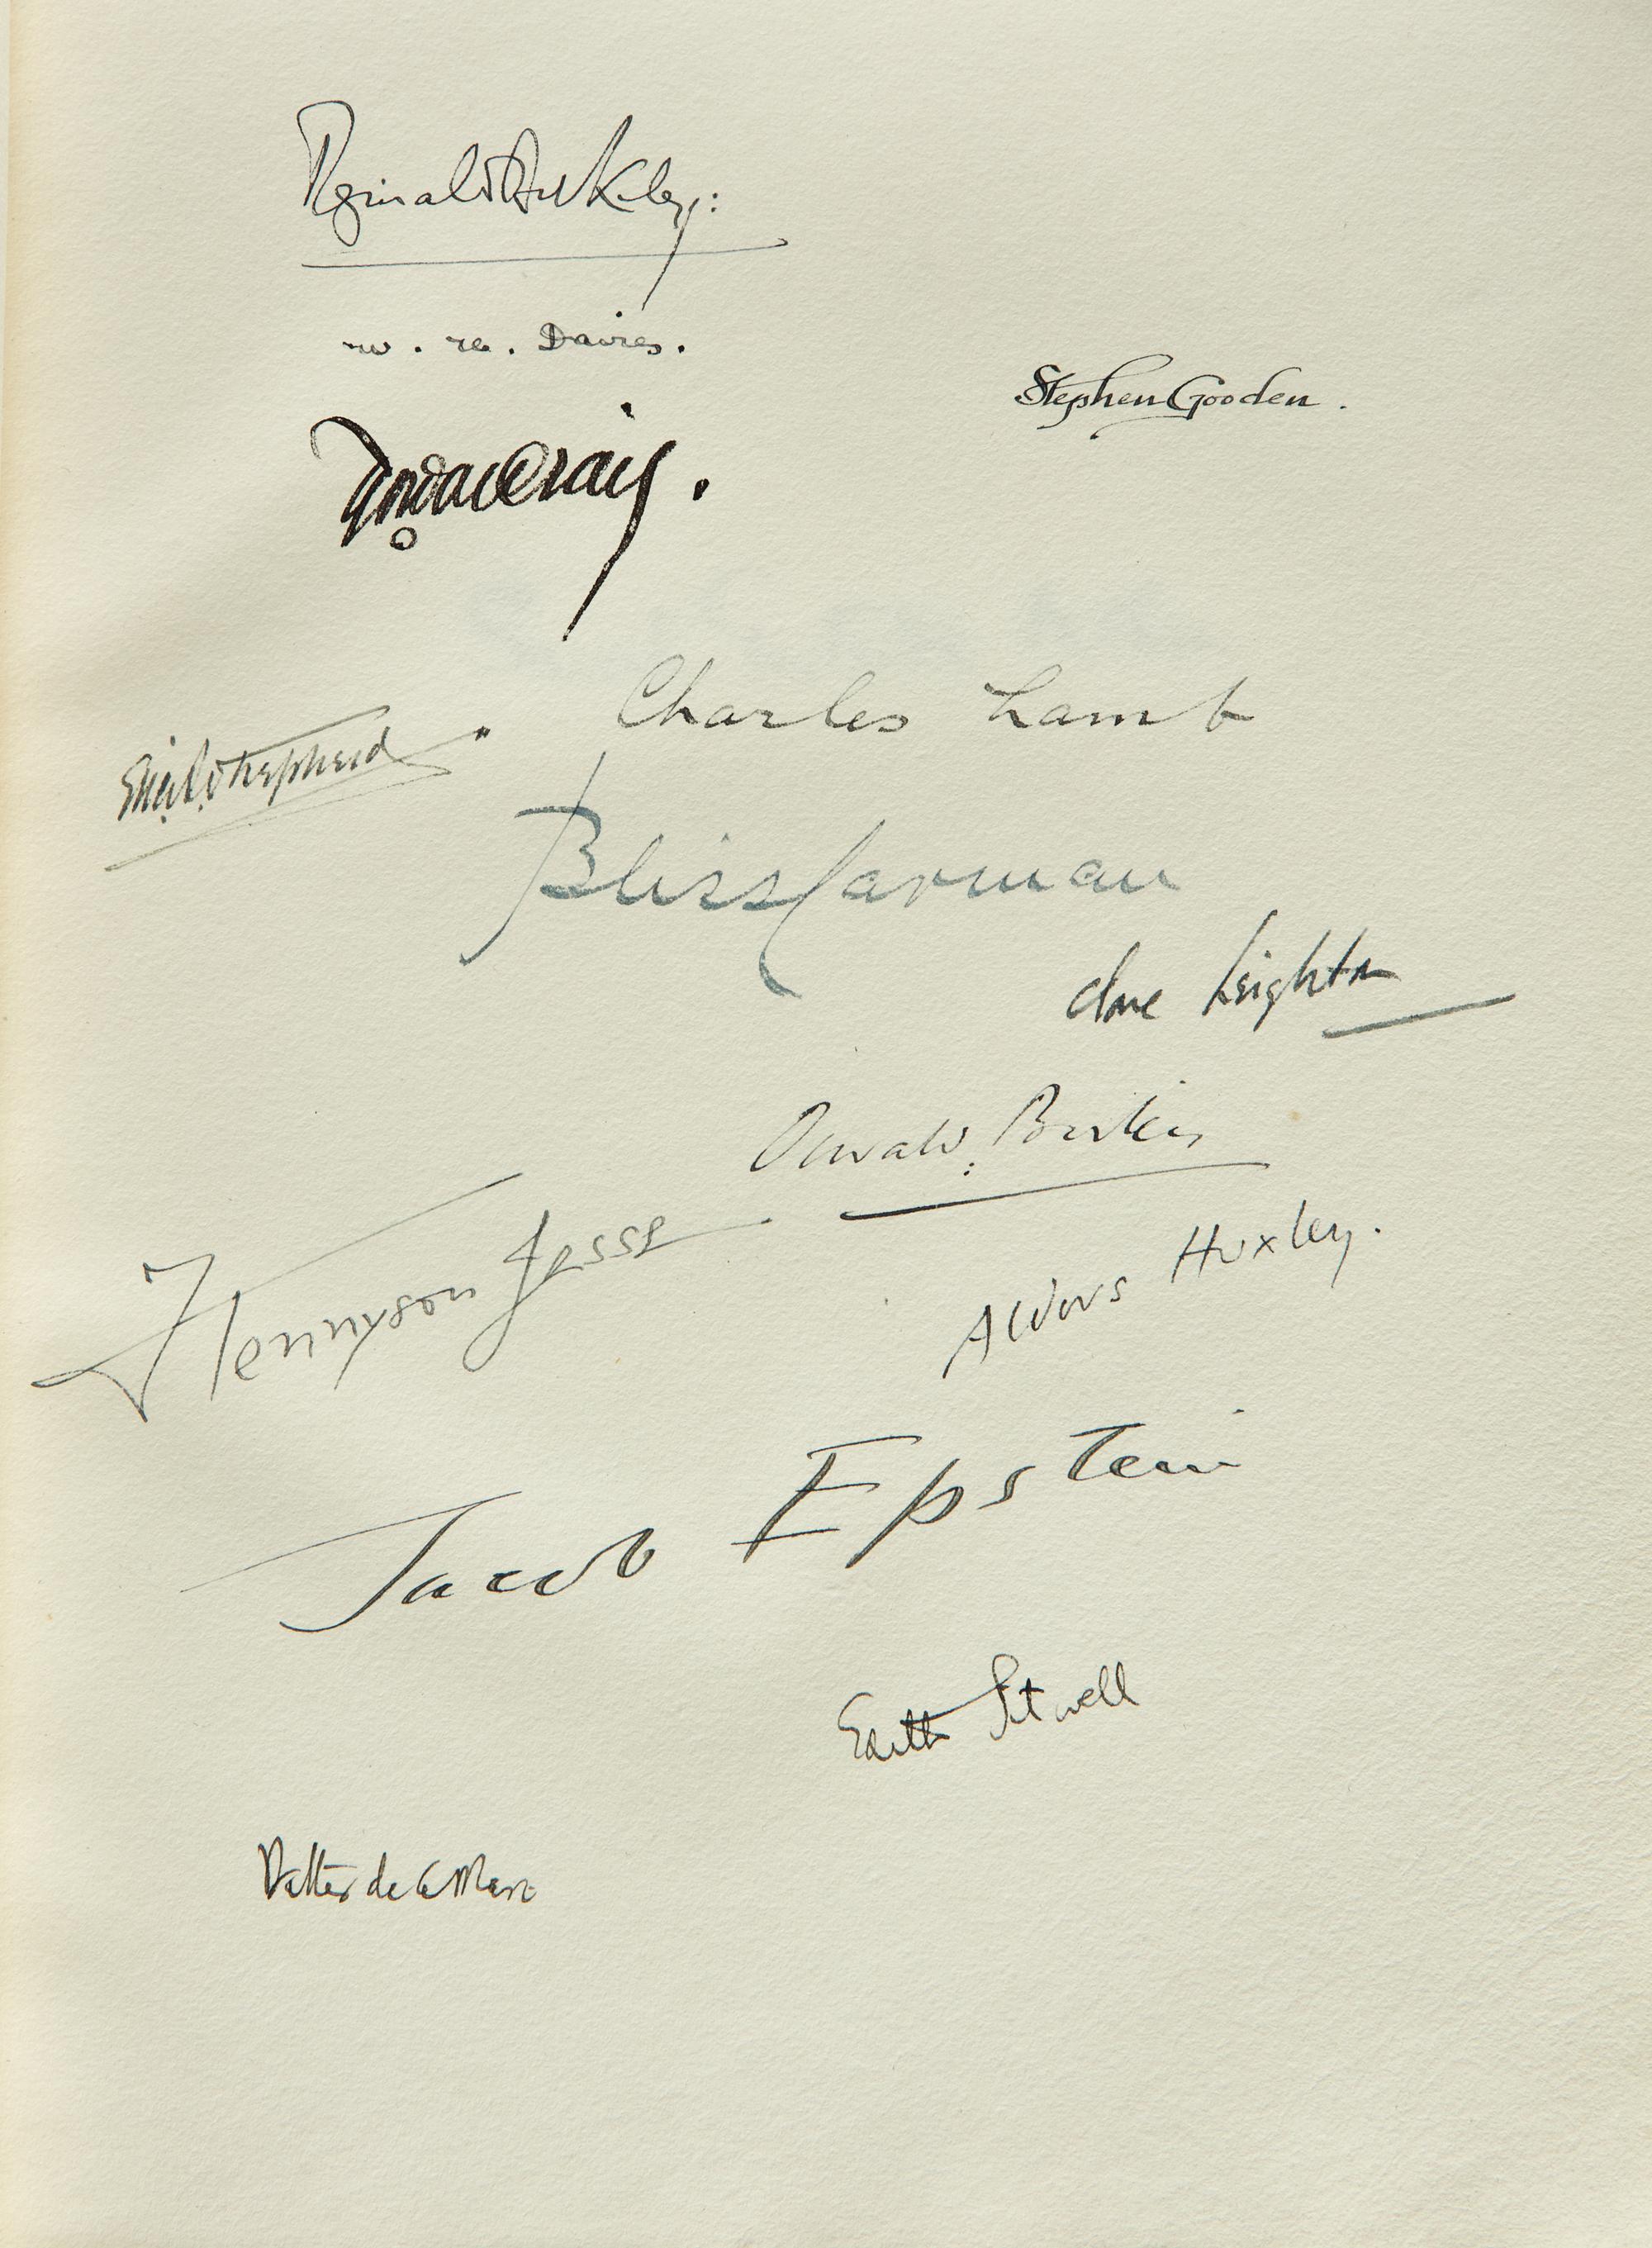 Reginald Arkley:
W. H. Davies.
Stephen Gooden.
Gordon Craig.
Charles Lamb
Shepherd
Bliss Carman
Clare Leighton
Oswald
F Tennyson Jesse
Aldous Huxley.
Jacob Epstein
Edith Sitwell
Walter de la Mare